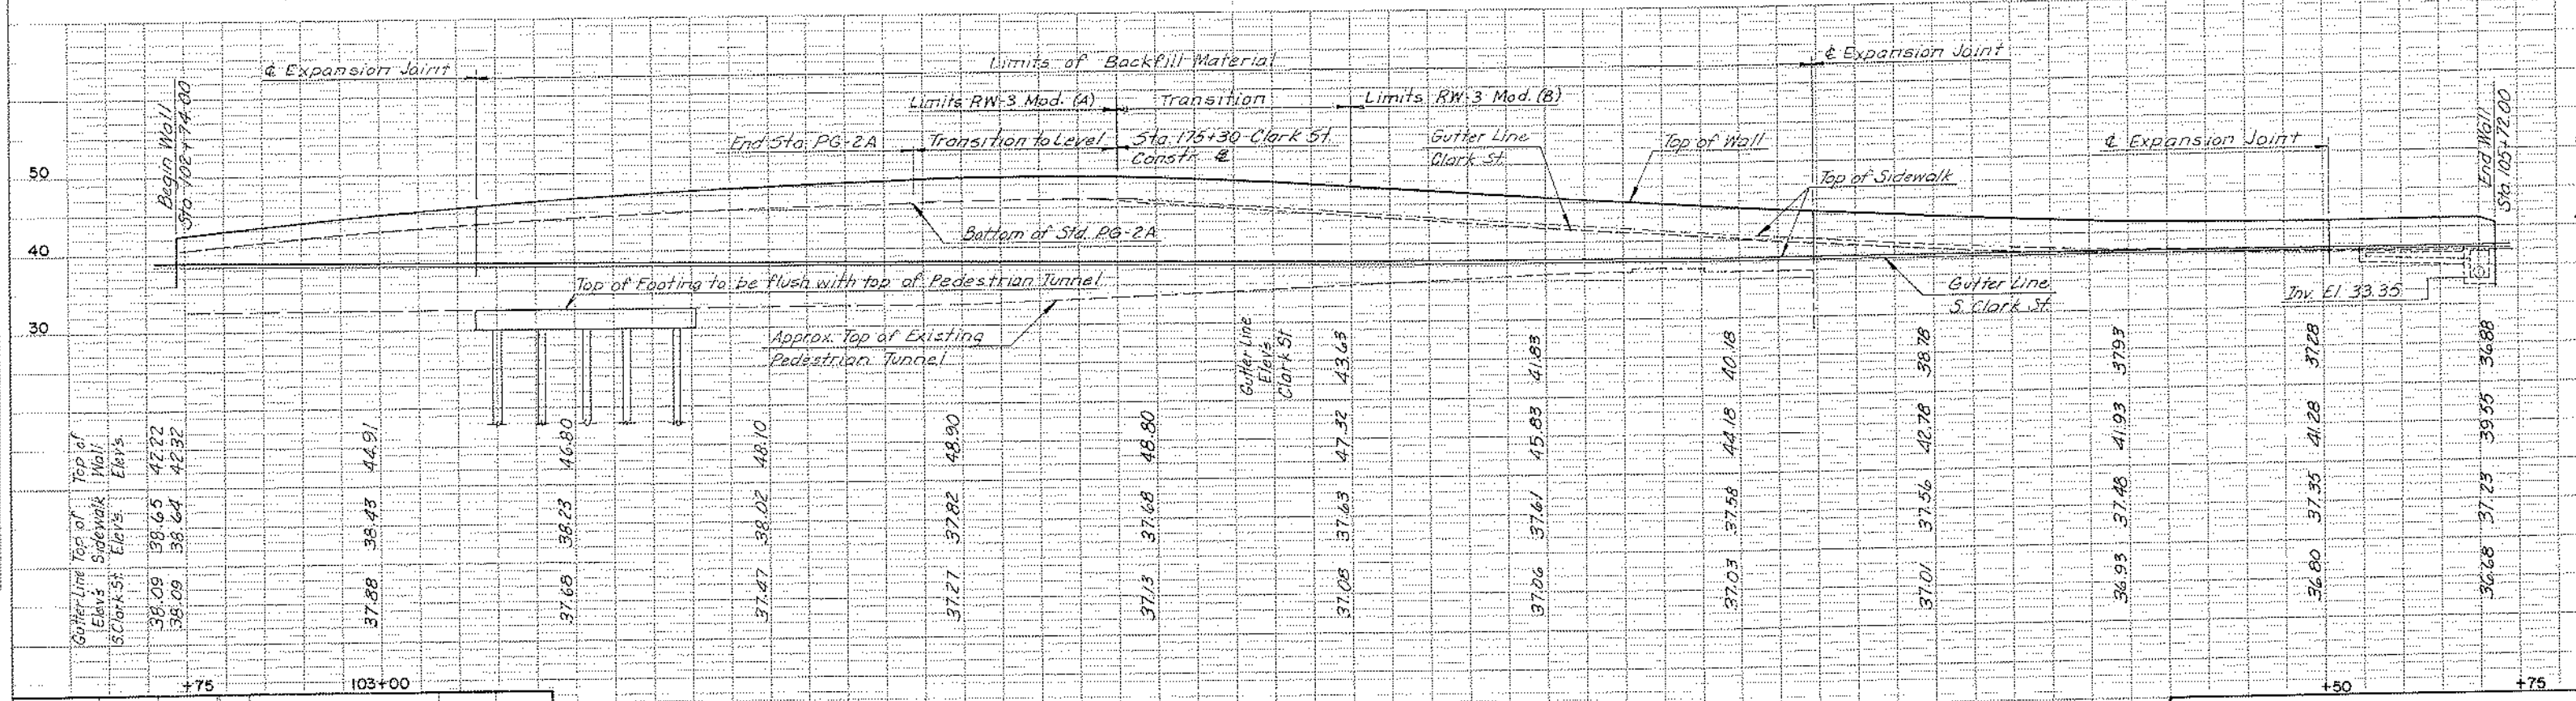 ₵ Expansion Joint
Limits of Backfill Material
₵ Expansion Joint
Begin Wall
Sta. 102+74.00
Limits RW-3 Mod. (A)
Transition
Limits RW-3 Mod. (B)
End Sta. PG-2A
Transition to Level
Sta. 175+30 Clark St.
Constr. ₵
Gutter Line
Clark St.
Top of Wall
₵ Expansion Joint
End Wall
Sta. 105+72.00
Top of Sidewalk
50
40
30
Bottom of Std. PG-2A
Top of Footing to be flush with top of Pedestrian Tunnel
Approx. Top of Existing
Pedestrian Tunnel
Gutter Line
S. Clark St.
Inv. El. 33.35
Gutter Line
Elev's
Clark St.
43.63 41.83 40.18 38.78 37.93 37.28 36.88
Top of
Wall
Elev's.
42.22 42.32 44.91 46.80 48.10 48.90 48.80 47.32 45.83 44.18 42.78 41.93 41.28 39.55
Top of
Sidewalk
Elev's.
38.65 38.64 38.43 38.23 38.02 37.82 37.68 37.63 37.61 37.58 37.56 37.48 37.35 37.23
Gutter Line
Elev's
S. Clark St.
38.09 38.09 37.88 37.68 37.47 37.27 37.13 37.08 37.06 37.03 37.01 36.93 36.80 36.68
+75 103+00 +50 +75